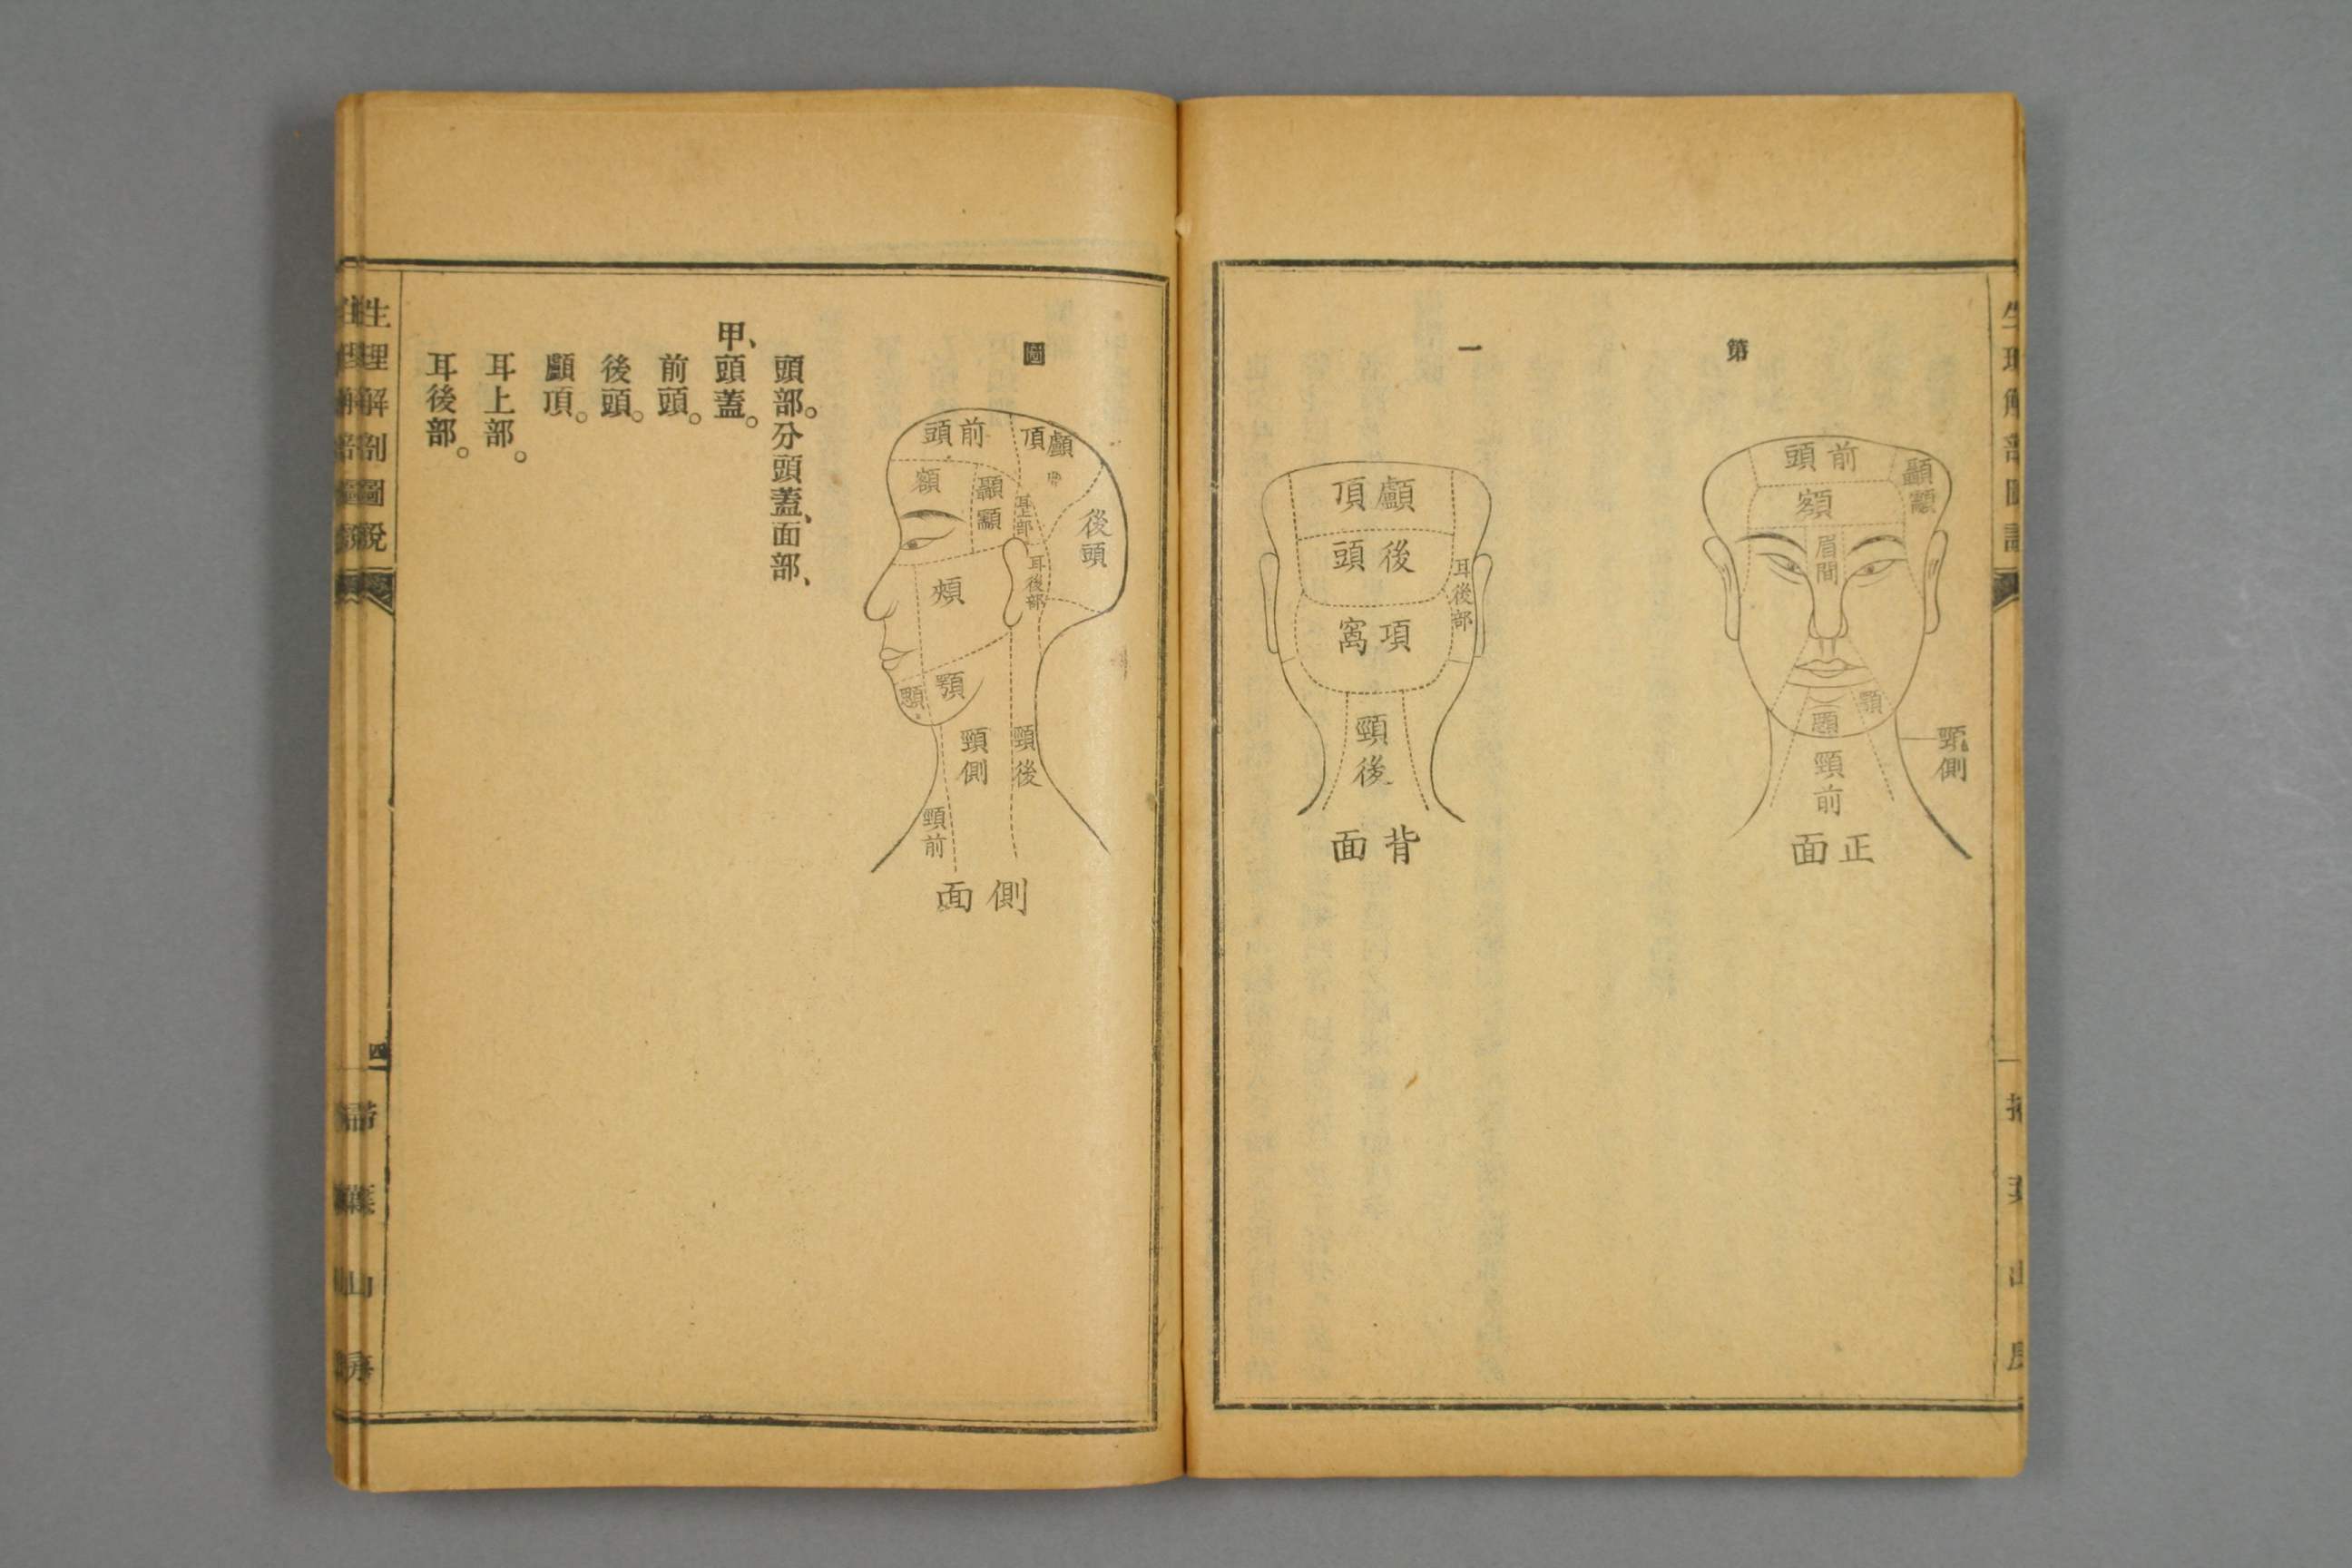 第
一
圖
前頭
顳顬
額
眉間
頤
頸前
頸側
正面
顱頂
後頭
耳後部
項窩
頸後
背面
前頭
顱頂
額
顳顬
耳上部
後頭
耳後部
頰
頤
顎
頸側
頸後
頸前
側面
頭部。分頭蓋、面部、
甲、頭蓋。
前頭。
後頭。
顱頂。
耳上部。
耳後部。
生理解剖圖說
四
掃葉山房